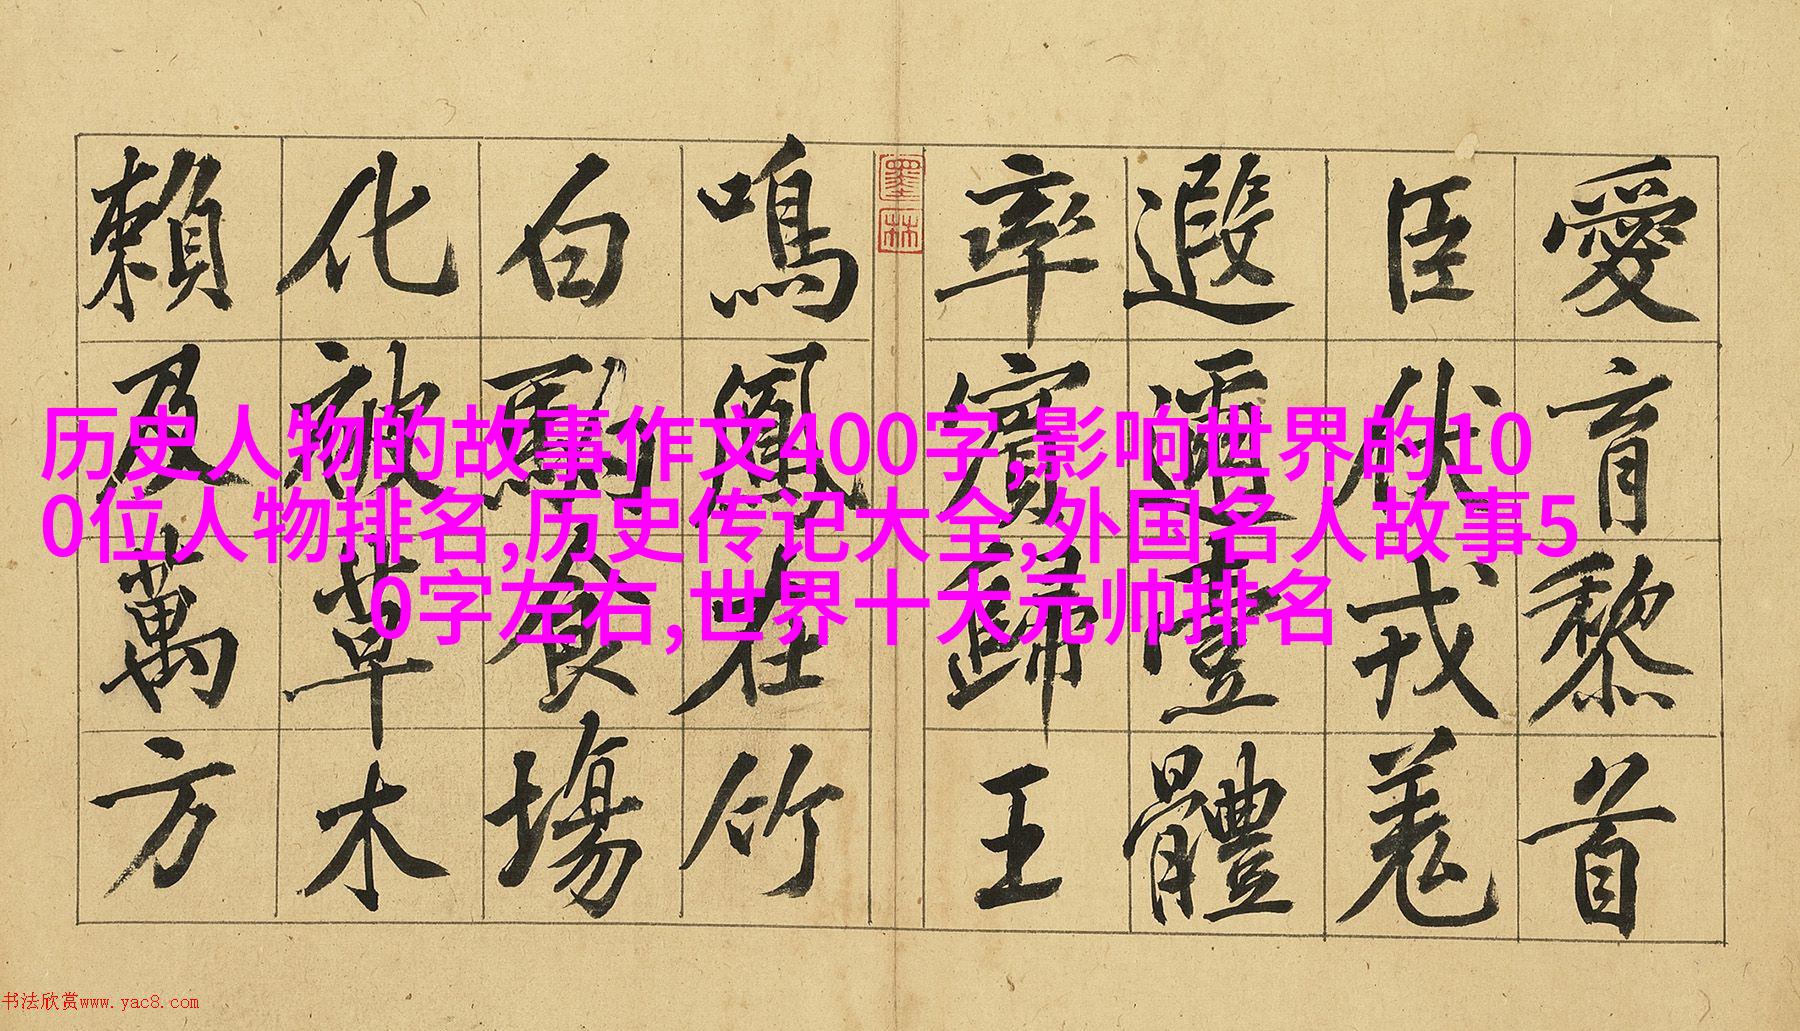 愛育黎首
臣伏戎羌
遐邇壹體
率賓歸王
墨林
鳴鳳在竹
白駒食場
化被草木
賴及萬方
历史人物的故事作文400字,影响世界的10
0位人物排名,历史传记大全,外国名人故事5
0字左右,世界十大元帅排名
书法欣赏www.yac8.com